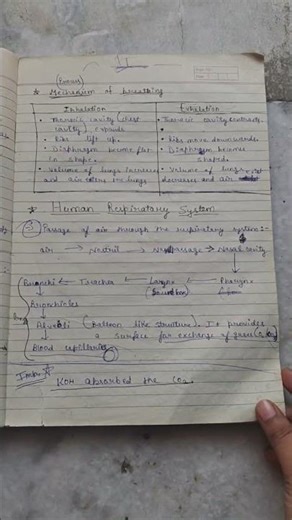 (Process)
* Mechanism of breathing
Inhalation
Exhalation
• Thoracic cavity (chest cavity) expands
• Thoracic cavity contracts.
• Ribs lift up.
• Ribs move downwards.
• Diaphragm become flat in shape.
• Diaphragm becomes shaped.
• Volume of lungs increases and air enters the lungs
• Volume of lungs decreases and air
* Human Respiratory System
Passage of air through the respiratory system :-
air → Nostril → → Nasal cavity
Bronchi ← Trachea ← Larynx ← Pharynx
Bronchioles
Alveoli (balloon like structure). It provides
a surface for exchange of gases
Blood capillaries
KOH absorbed the CO2.